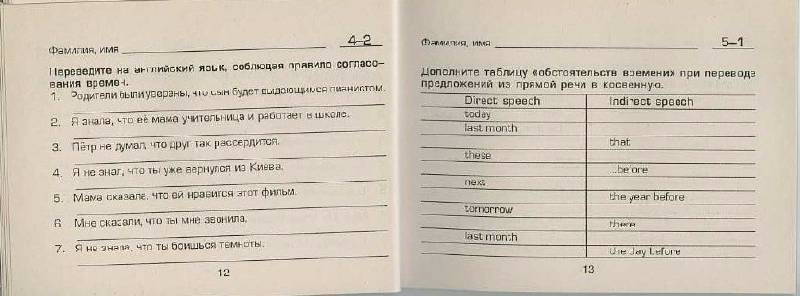 Фамилия, имя 4–2
Переведите на английский язык, соблюдая правило согласо-
вания времен.
1. Родители были уверены, что сын будет выдающимся пианистом.
2. Я знала, что её мама учительница и работает в школе.
3. Пётр не думал, что друг так рассердится.
4. Я не знал, что ты уже вернулся из Киева.
5. Мама сказала, что ей нравится этот фильм.
6. Мне сказали, что ты мне звонила.
7. Я не знала, что ты боишься темноты.
12
Фамилия, имя 5–1
Дополните таблицу «обстоятельств времени» при переводе
предложений из прямой речи в косвенную.
Direct speech Indirect speech
today
last month
that
these
...before
next
the year before
tomorrow
there
last month
the day before
13